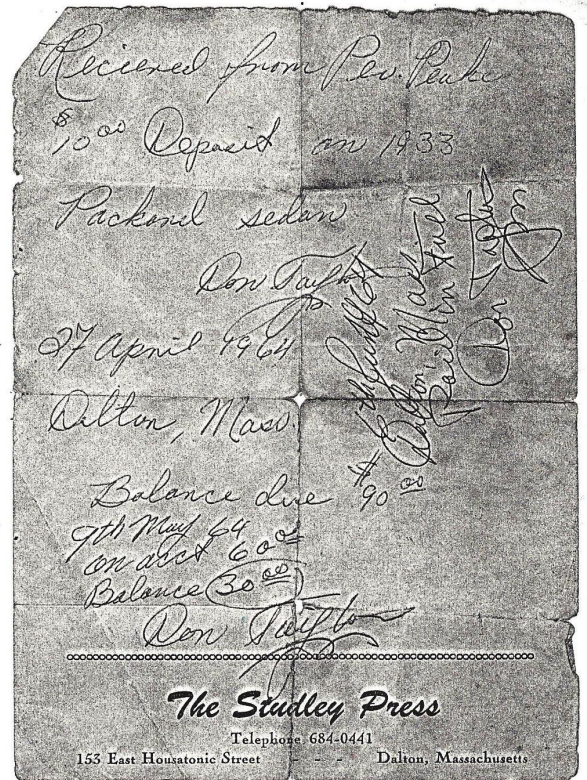 Recieved from Rev. Peake
$10 00 Deposit on 1933
Packard sedan
Don Taylor
27 April 1964
Dalton, Mass.
Balance due $90 00
9th May 64
on acct 60 00
Balance 30 00
Don Taylor
Dalton, Mass
Paid in full
Don Taylor
The Studley Press
Telephone 684-0441
153 East Housatonic Street - - - Dalton, Massachusetts